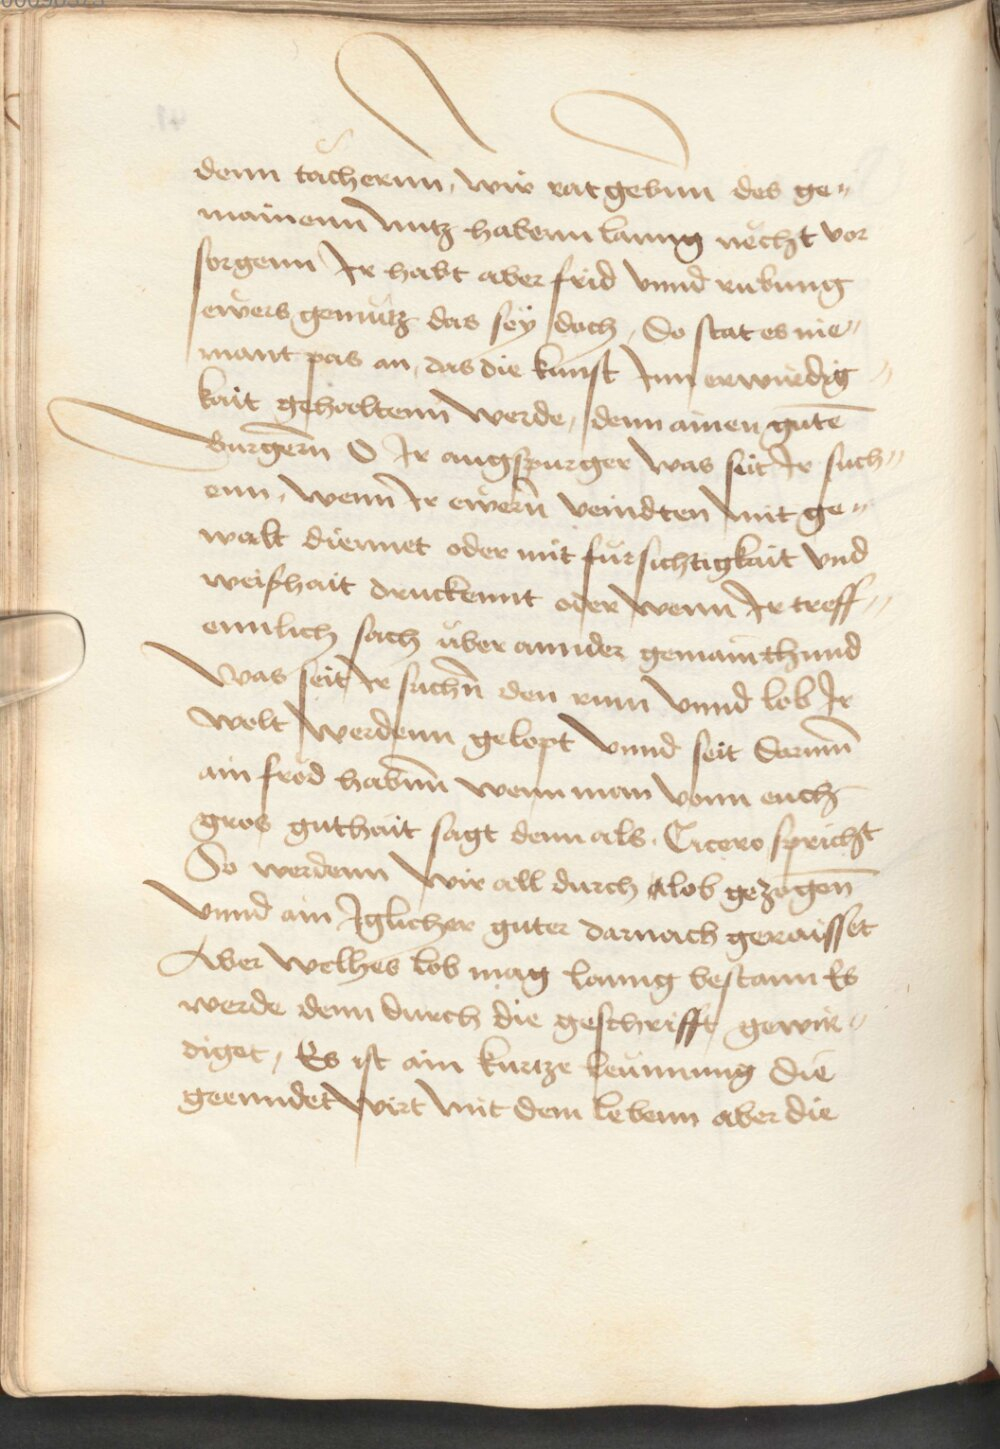 denn tächernn, wir rat gebnn des ge„
mainenn nutz habenn lanng nёcht vor
sorgenn Ir habt aber frid vnnd rubung
ewers gemütz das sey doch, Do stat es nie„
mant pas an, das die kunst Inn erwirdig„
kait gehaltenn werde, denn ainen gutē
burgern̄ O Ir augspurger was seit Ir such„
enn, wenn Ir ewern̄ veindten mit ge„
walt diennet oder mit fürsichtigkait vnd
weißhait druckennt oder wenn Ir treff„
ennlich sach über annder gemain thund
Was seit Ir suchn̄ den rum vnnd lob Ir
wolt werdenn gelopt vnnd seit darum̄
ain fröd habnn̄ wenn man vonn euch
gros guthait sagt denn als Cicero spricht
So werdenn wir all durch lob gezogen̄
vnnd ain Iglicher guter darnach geraisset
Aber welhes lob mag lanng bestann Es
werde denn durch die geschrifft gewir„
diget, Es ist ain kurtze leünnung die
geenndet wirt mit dem lebenn aber die